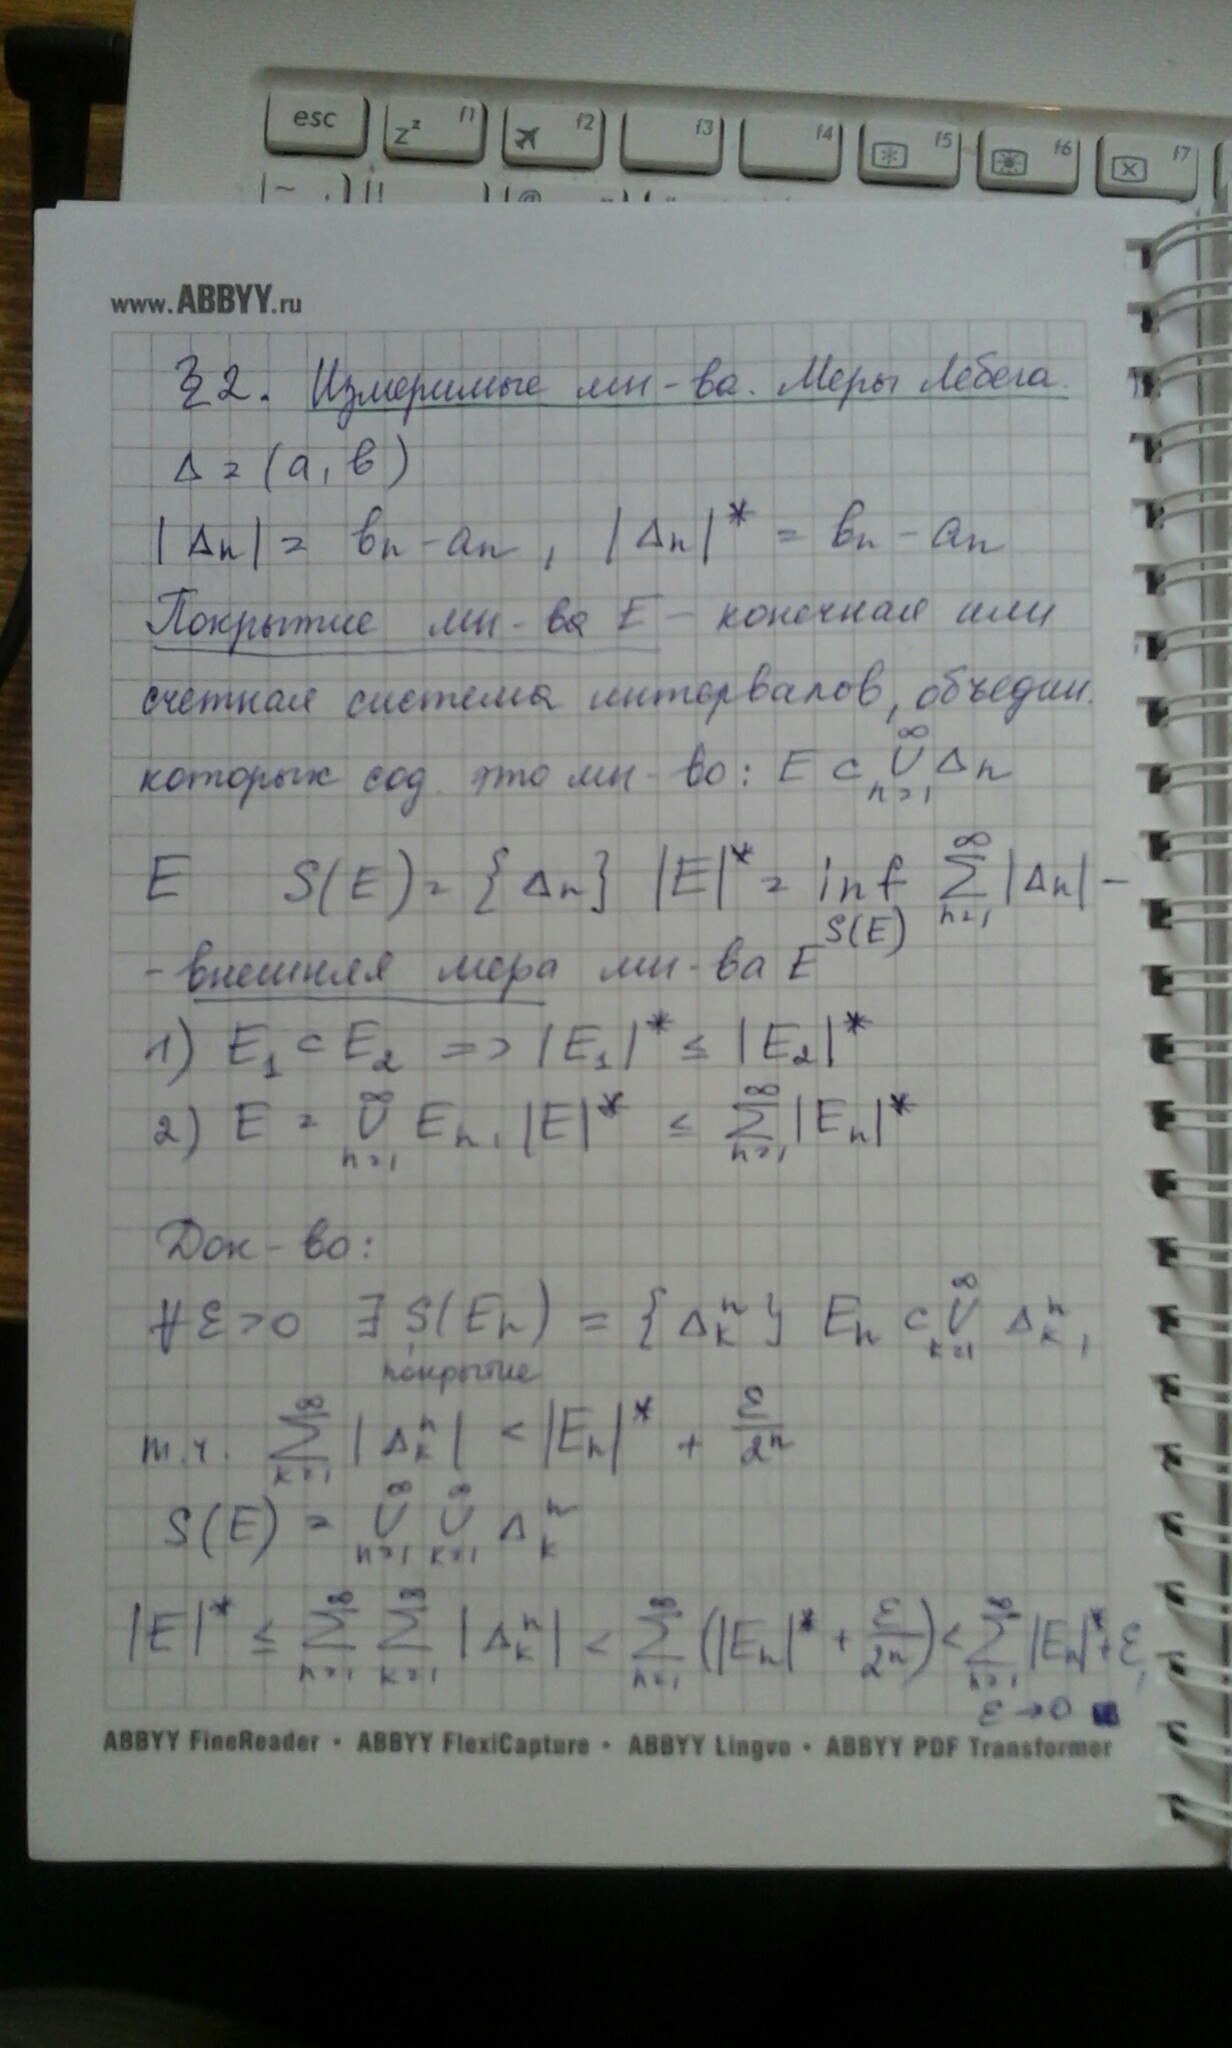 esc z² f1 f2 f3 f4 f5 f6 f7
~ ! @ "
www.ABBYY.ru
§2. Измеримые мн-ва. Меры Лебега.
Δ = (a, b)
|Δn| = bn - an, |Δn|* = bn - an
Покрытие мн-ва E - конечная или
счетная система интервалов, объедин.
которых сод. это мн-во: E ⊂ ∞∪n=1 Δn
E S(E) = {Δn} |E|* = inf S(E) ∞∑n=1 |Δn| -
- внешняя мера мн-ва E
1) E₁ ⊂ E₂ => |E₁|* ≤ |E₂|*
2) E = ∞∪n=1 En, |E|* ≤ ∞∑n=1 |En|*
Док-во:
∀ε>0 ∃ S(En) = {Δkⁿ} En ⊂ ∞∪k=1 Δkⁿ,
покрытие
т.ч. ∞∑k=1 |Δkⁿ| < |En|* + ε/2ⁿ
S(E) = ∞∪n=1 ∞∪k=1 Δkⁿ
|E|* ≤ ∞∑n=1 ∞∑k=1 |Δkⁿ| < ∞∑n=1 (|En|* + ε/2ⁿ) < ∞∑n=1 |En|* + ε,
ε → 0 ■
ABBYY FineReader • ABBYY FlexiCapture • ABBYY Lingvo • ABBYY PDF Transformer